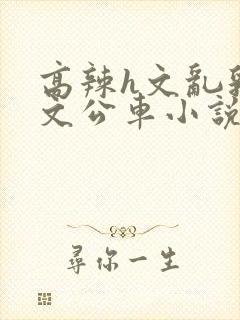 高辣h文亂乳
文公車小說
尋你一生